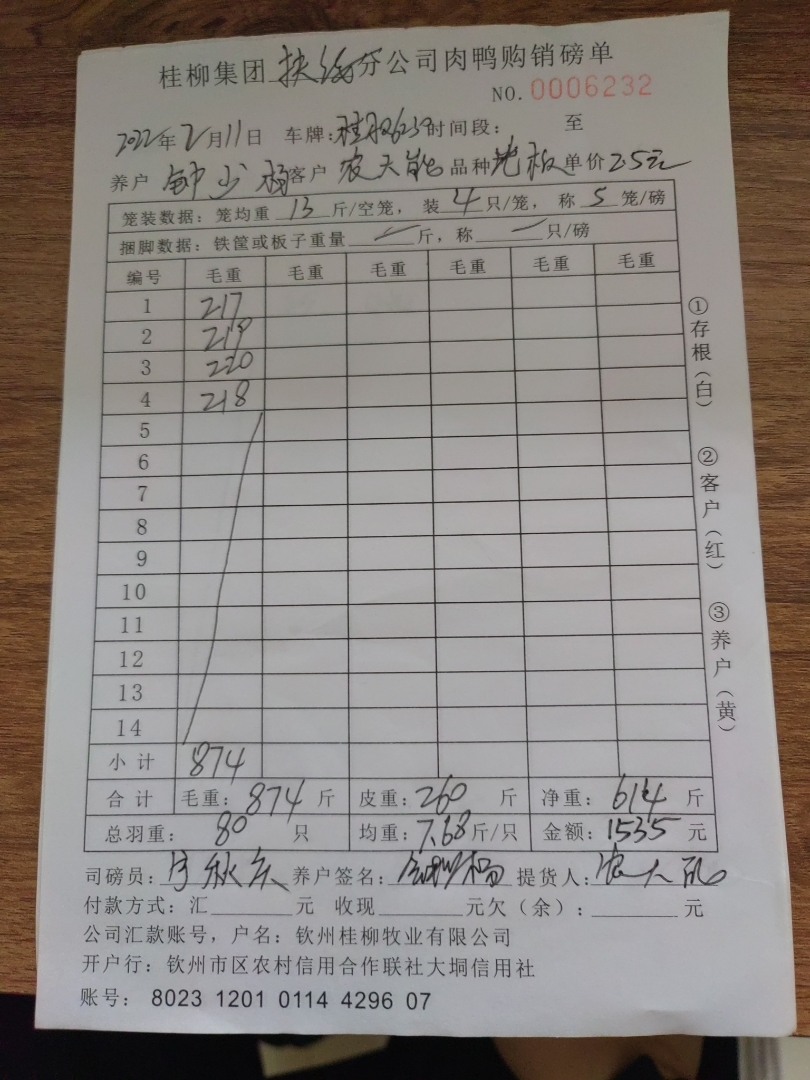 桂柳集团扶绥分公司肉鸭购销磅单
NO.0006232
2022年2月11日 车牌: 时间段: 至
养户 钟 杨 客户 农大能 品种 光板 单价 2.5元
笼装数据: 笼均重 13 斤/空笼, 装 4 只/笼, 称 5 笼/磅
捆脚数据: 铁筐或板子重量 斤, 称 只/磅
编号 毛重 毛重 毛重 毛重 毛重 毛重
1 217
2 219
3 220
4 218
5
6
7
8
9
10
11
12
13
14
小计 874
合计 毛重: 874 斤 皮重: 260 斤 净重: 614 斤
总羽重: 80 只 均重: 7.68 斤/只 金额: 1535 元
司磅员: 养户签名: 提货人:
付款方式: 汇 元 收现 元欠(余): 元
公司汇款账号, 户名: 钦州桂柳牧业有限公司
开户行: 钦州市区农村信用合作联社大垌信用社
账号: 8023 1201 0114 4296 07
①存根(白)
②客户(红)
③养户(黄)